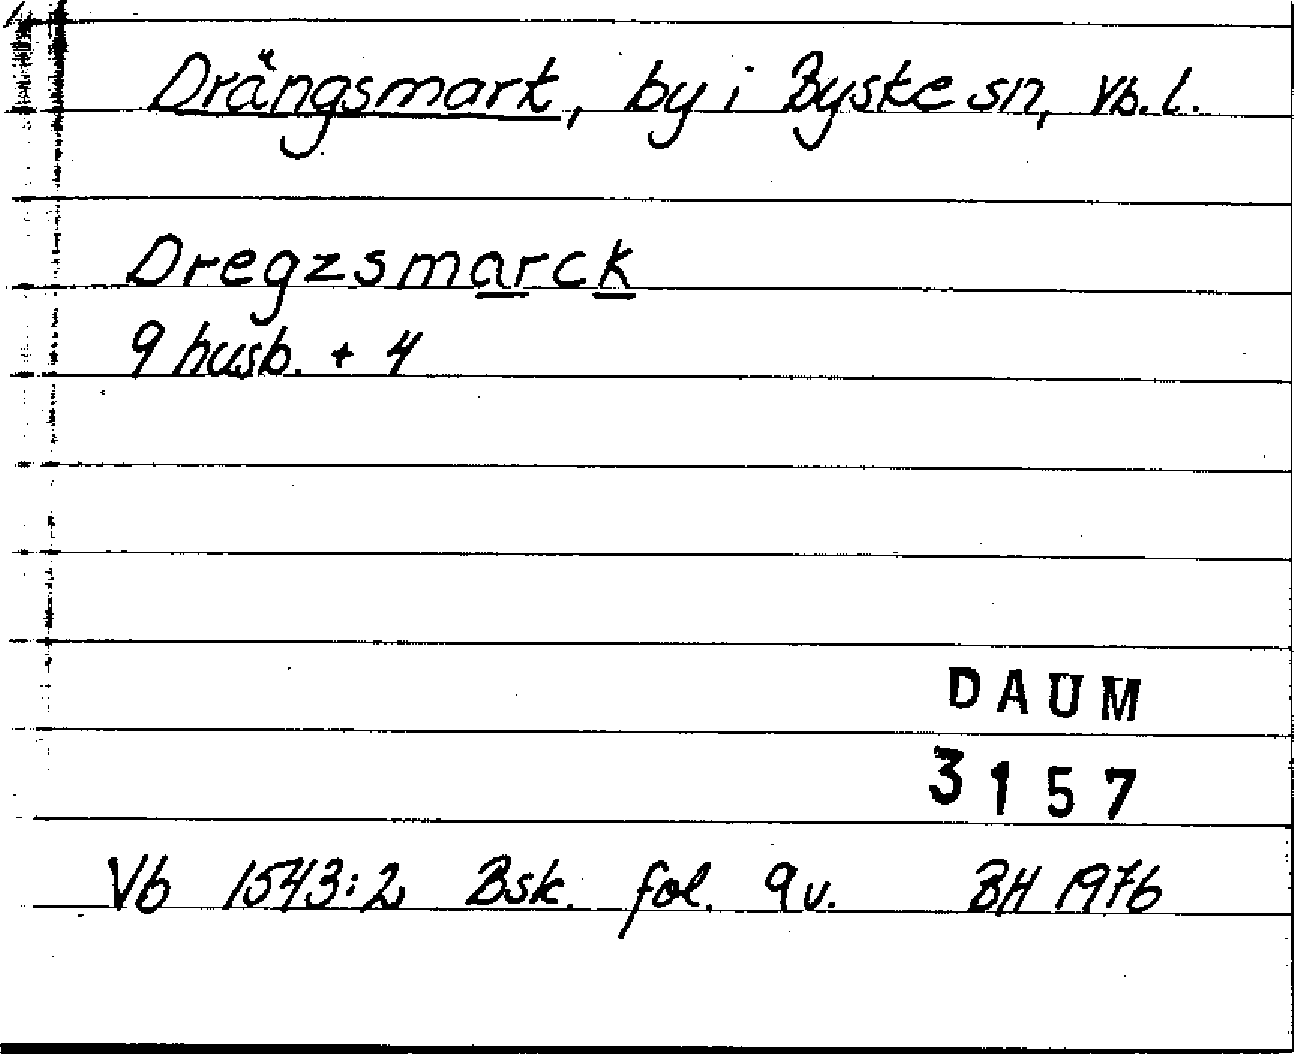 Drängsmark, by i Byske sn, Vb. l.
Dregzsmarck
9 husb. + 4
DAUM
3157
Vb 1543:2 Bsk. fol. 9v. BH 1976